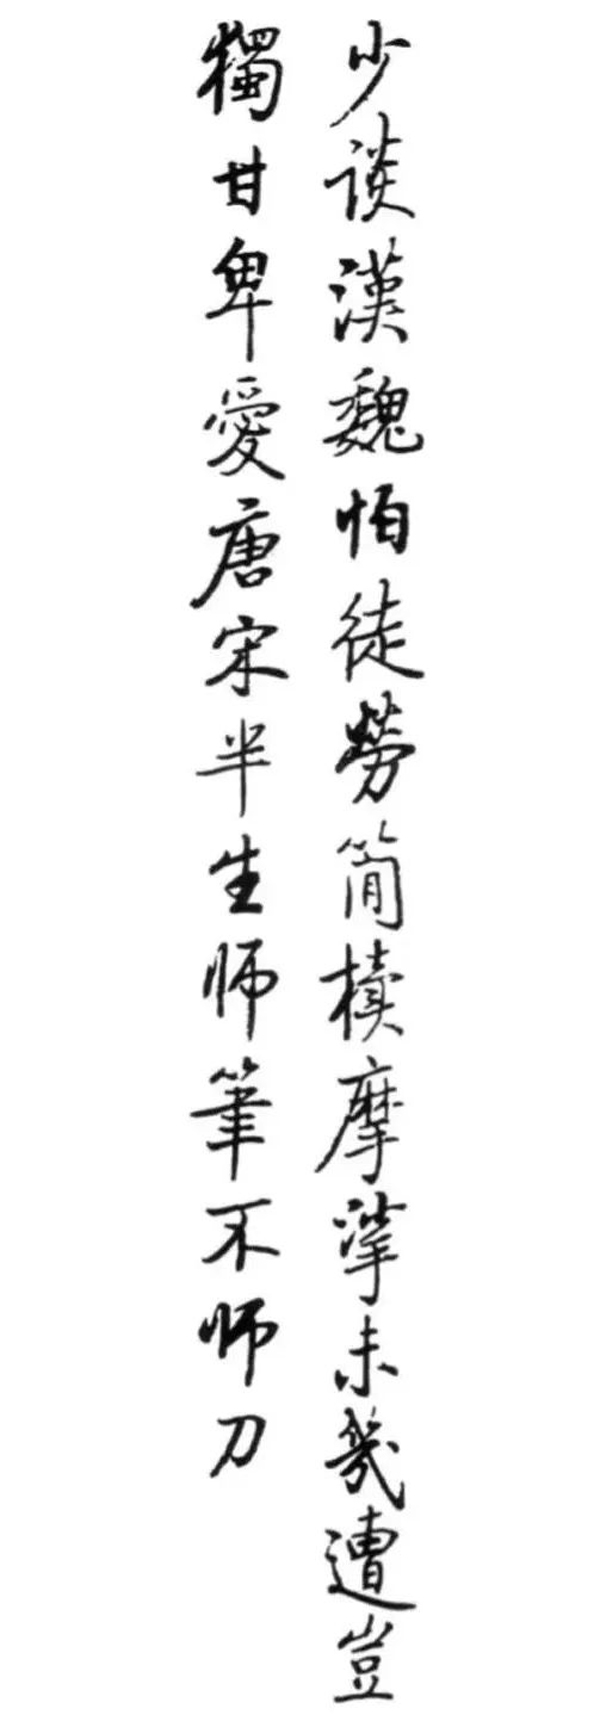 少談漢魏怕徒勞簡牘摩挲未幾遭豈
獨甘卑愛唐宋半生師筆不師刀